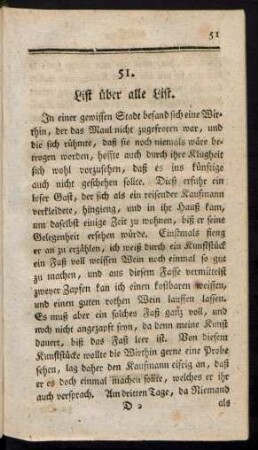 51
51.
List über alle List.
In einer gewissen Stadt befand sich eine Wir-
thin, der das Maul nicht zugefroren war, und
die sich rühmte, daß sie noch niemals wäre be-
trogen worden, hoffte auch durch ihre Klugheit
sich wohl vorzusehen, daß es ins künftige
auch nicht geschehen sollte. Dieß erfuhr ein
loser Gast, der sich als ein reisender Kaufmann
verkleidete, hingieng, und in ihr Hauß kam,
um daselbst einige Zeit zu wohnen, biß er seine
Gelegenheit ersehen würde. Einstmals fieng
er an zu erzählen, ich weiß durch ein Kunststück
ein Faß voll weissen Wein noch einmal so gut
zu machen, und aus diesem Fasse vermittelst
zweyer Zapfen kan ich einen kostbaren weissen,
und einen guten rothen Wein lauffen lassen.
Es muß aber ein solches Faß ganz voll, und
noch nicht angezapft seyn, da denn meine Kunst
dauert, biß das Faß leer ist. Von diesem
Kunststücke wollte die Wirthin gerne eine Probe
sehen, lag daher den Kaufmann eifrig an, daß
er es doch einmal machen sollte, welches er ihr
auch versprach. Am dritten Tage, da Niemand
D 2 als